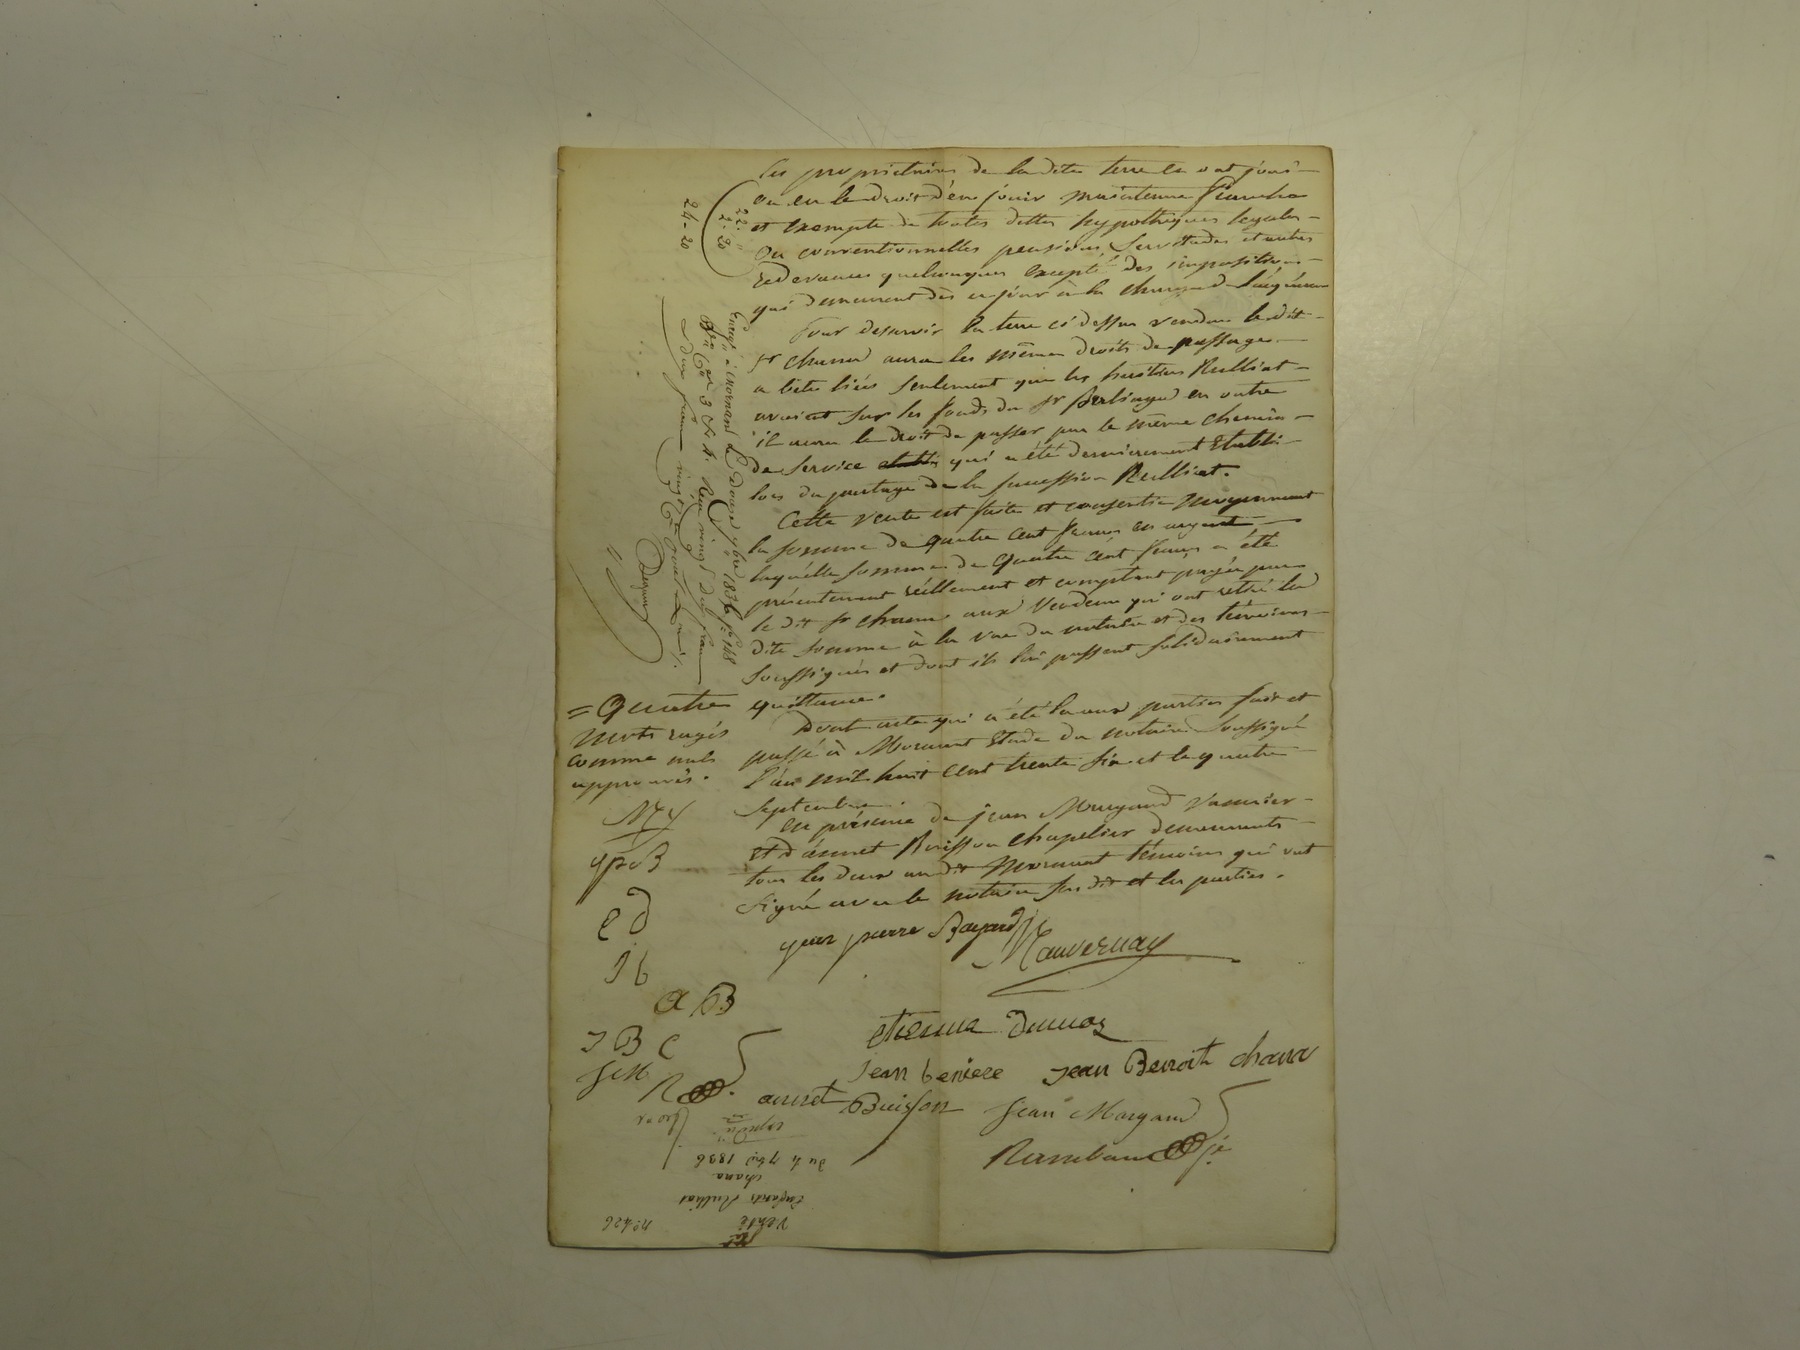 les propriétaires de la dite terre en ont joui
ou eu le droit d'en jouir maintenue franche
et exempte de toutes dettes hypothèques legales
ou conventionnelles pensions, servitudes et autres
redevances quelconques excepté des impositions
qui demeurent dès ce jour à la charge de l'aquéreur
Pour desservir la terre ci dessus vendue le dit
Sr chana aura les mêmes droits de passage
a bete liée seulement que les heritiers Rulliat
avaient sur les fonds du Sr en outre
il aura le droit de passer par le même chemin
de service etabli qui a été dernierement Etabli
lors du partage de la succession Rulliat.
Cette vente est faite et consentie moyennant
la somme de quatre cent francs en argent
laquelle somme de quatre cent francs a été
présentement réellement et comptant payée par
le dit Sr chana aux Vendeurs qui ont retiré la
dite somme à la vue du notaire et des témoins
soussignés et dont ils lui passent solidairement
quittance.
Dont acte qui a été lu aux parties fait et
passé à Mornant Etude du notaire soussigné
l'an mil huit cent trente six et le quatre
septembre.
En présence de jean Morgand
et d'annet Buisson chapelier demeurants
tous les deux au dit Mornant témoins qui ont
signé avec le notaire sus dit et les parties.
= Quatre
mots rayés
comme nuls
approuvés.
jean pierre Bayard
Mauvernay
etienne Dumas
jean beniere Jean Benoit chana
annet Buisson Jean Morgand
E D
J b
a B
J B C
J M
24 - 20
22. "
2. 20
Enregt à Mornant Le Douze 7bre 1836 fo 148
Ro Cen 3 & 4. Reçu vingt Deux francs
deux francs vingt Cmes
n° 426
Vente
Enfants Rulliat
chana
du 4 7bre 1836
expédié